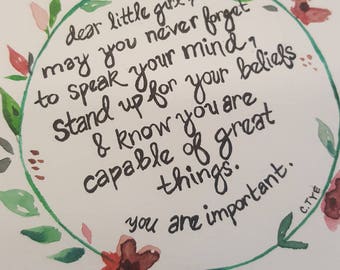 dear little girl,
may you never forget
to speak your mind,
Stand up for your beliefs
& know you are
capable of great
things.
you are important.
C.TYE